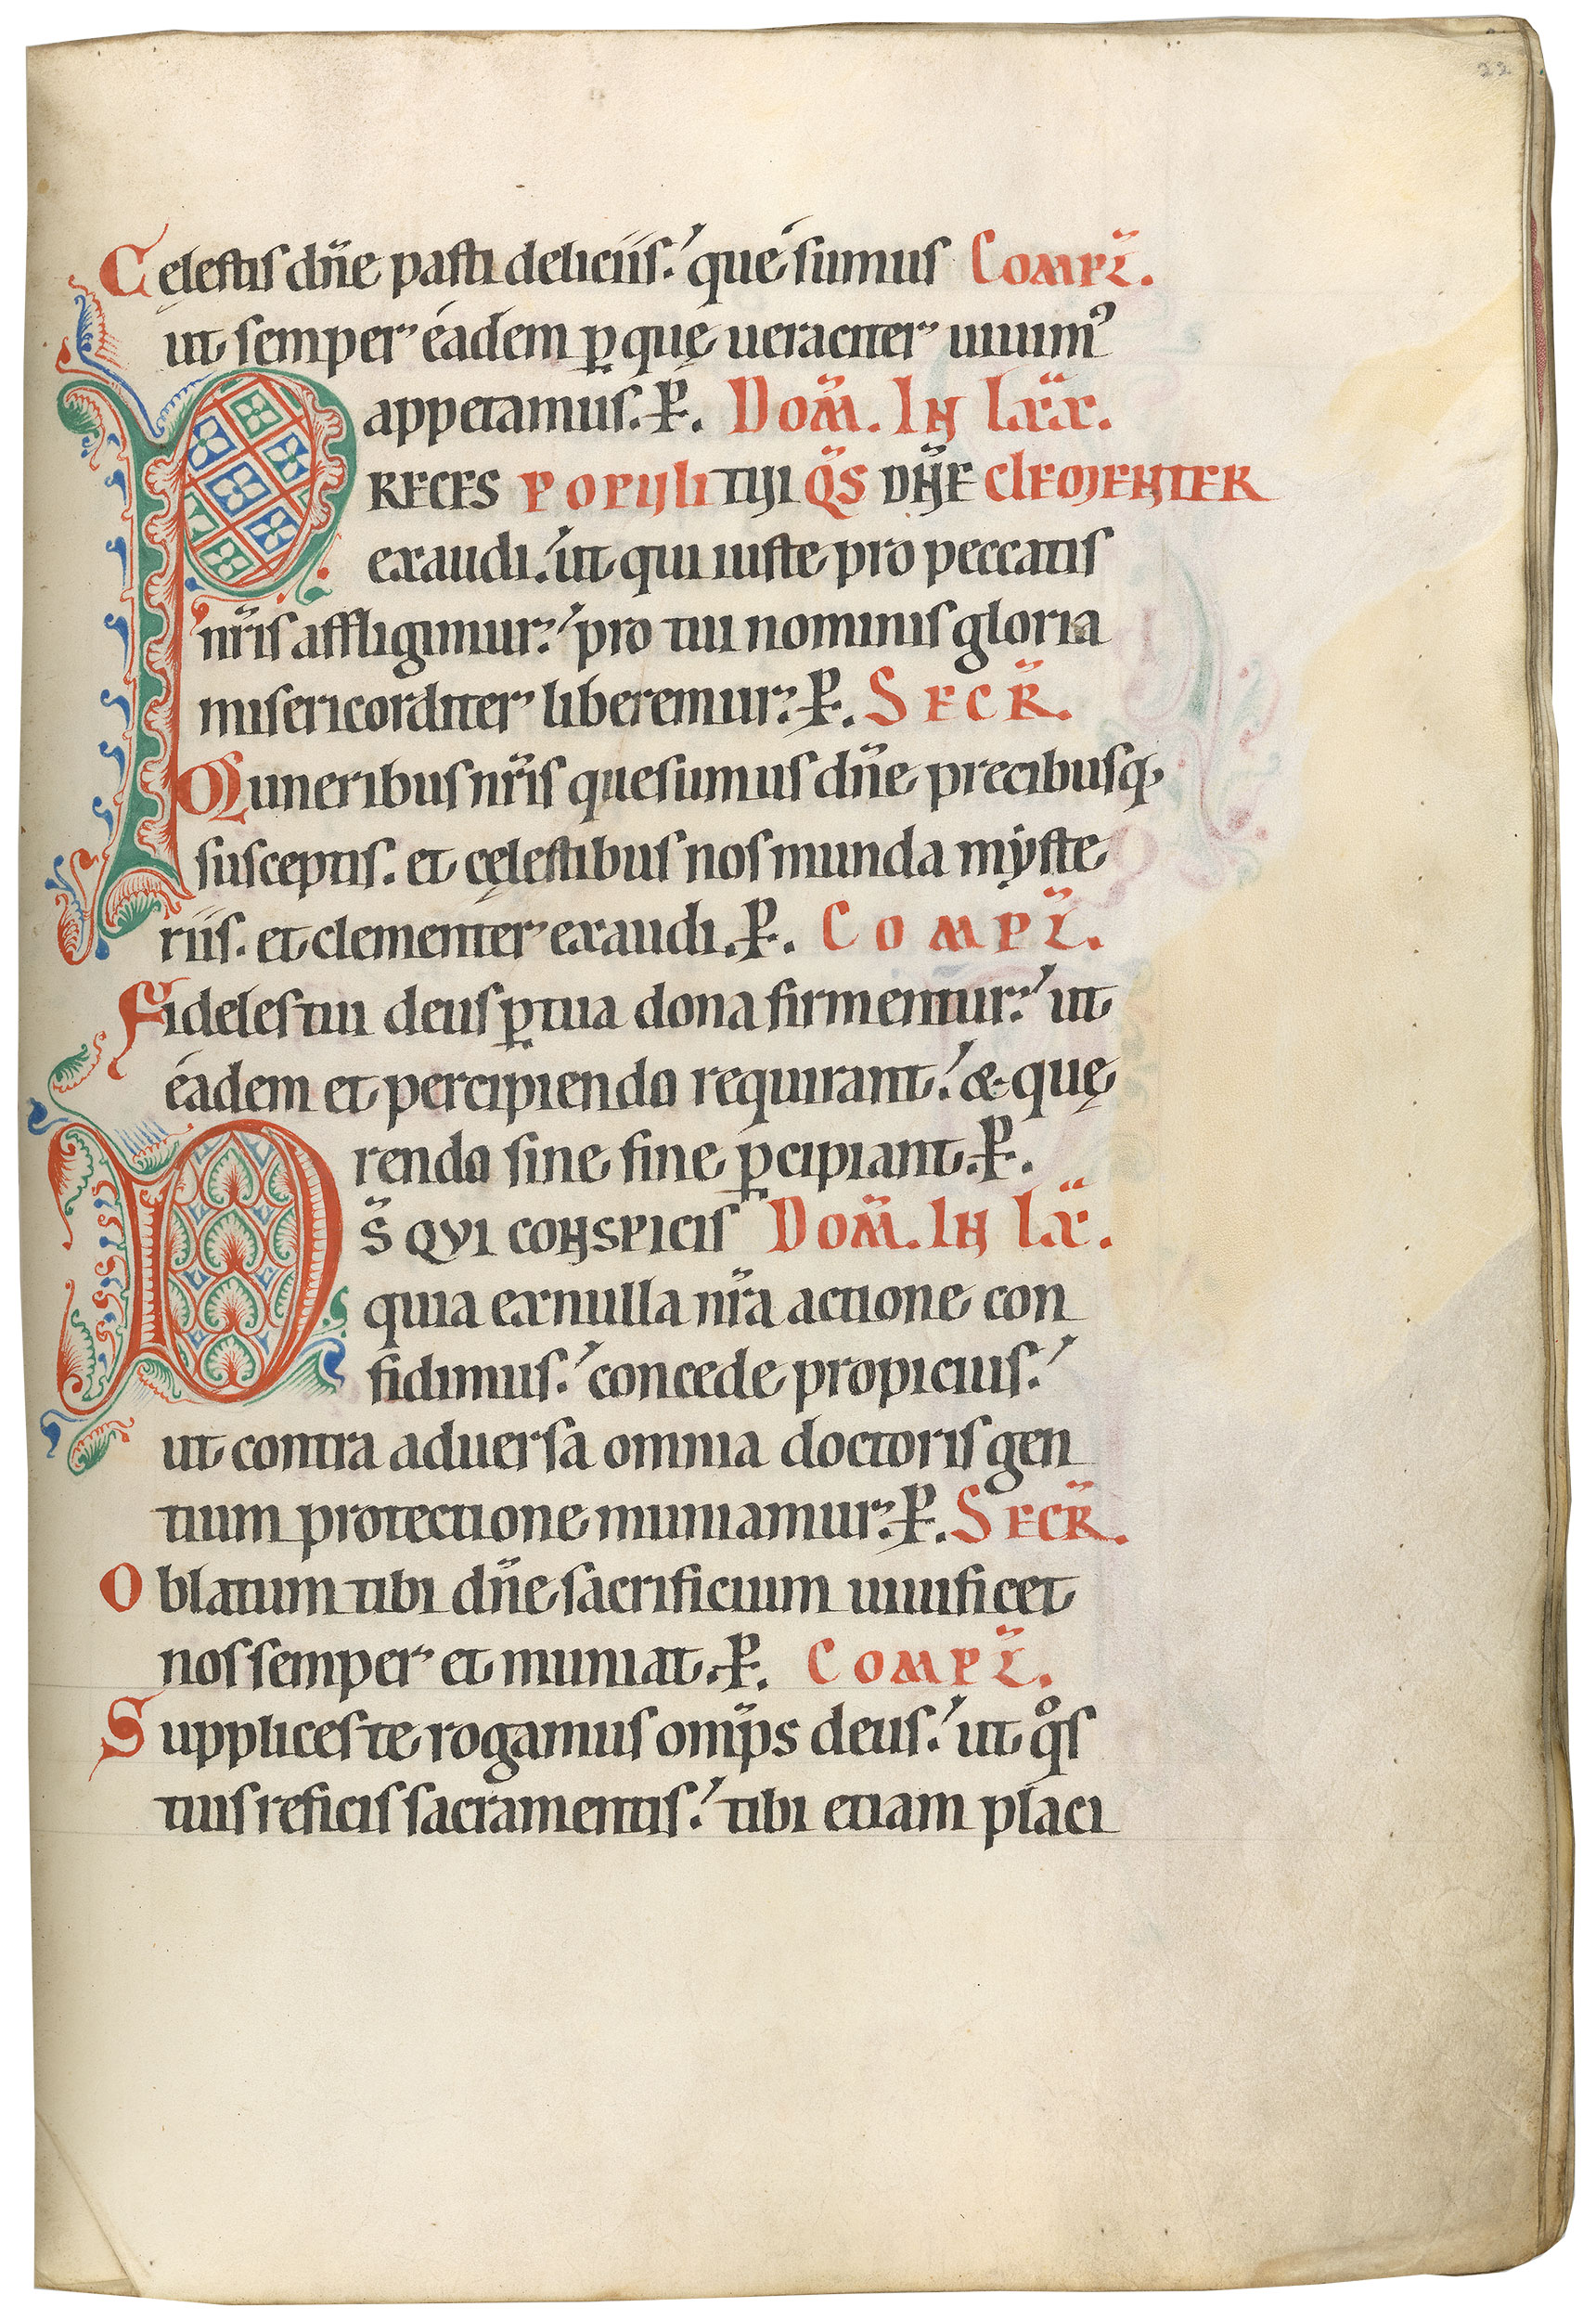 22
Cęlestis dn̄e pasti deliciis. que sumus Compl̄.
ut semper éadem p̱ quę ueraciter uiuim᾽
appetamus. P̱. Dom̄. In lxx.
PRECES POPULI TUI Q̄S DN̄E CLEMENTER
exaudi. ut qui iuste pro peccatis
nr̄is affligimur. pro tui nominis gloria
misericorditer liberemur. P̱. SECR̄.
Muneribus nr̄is quesumus dn̄e precibusq;
susceptis. et cęlestibus nos munda mẏste
riis. et clementer exaudi. P̱. COMPL̄.
Fideles tui deus p̱ tua dona firmentur. ut
éadem et percipiendo requirant. & quę
rendo sine fine p̱cipiant. P̱.
DS̄ QVI CONSPICIS DOM̄. IN LX.
quia ex nulla nr̄a actione con
fidimus. concede propicius.
ut contra aduersa omnia doctoris gen
tium protectione muniamur. P̱. SECR̄.
Oblatum tibi dn̄e sacrificium uiuificet
nos semper et muniat. P̱. COMPL̄.
Supplices te rogamus omp̄s deus. ut qͦs
tuis reficis sacramentis. tibi etiam placi